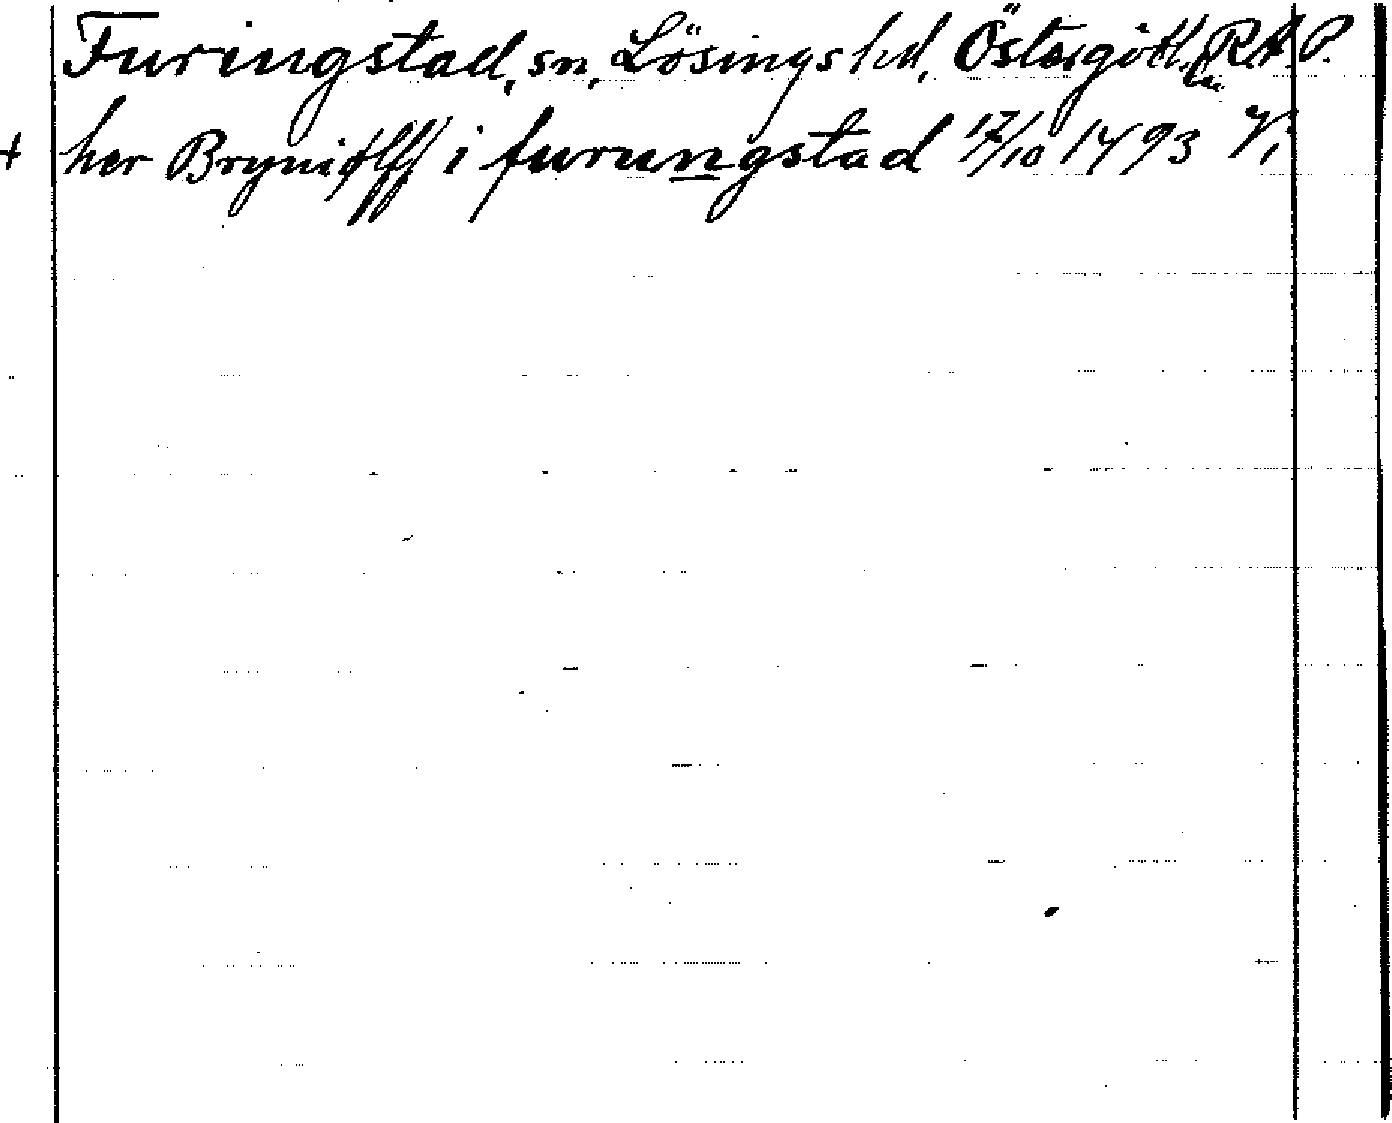 Furingstad, sn, Lösings hd, Östergötl. län RAP.
+ her Bryniølff i furungstad 17/10 1493 V.